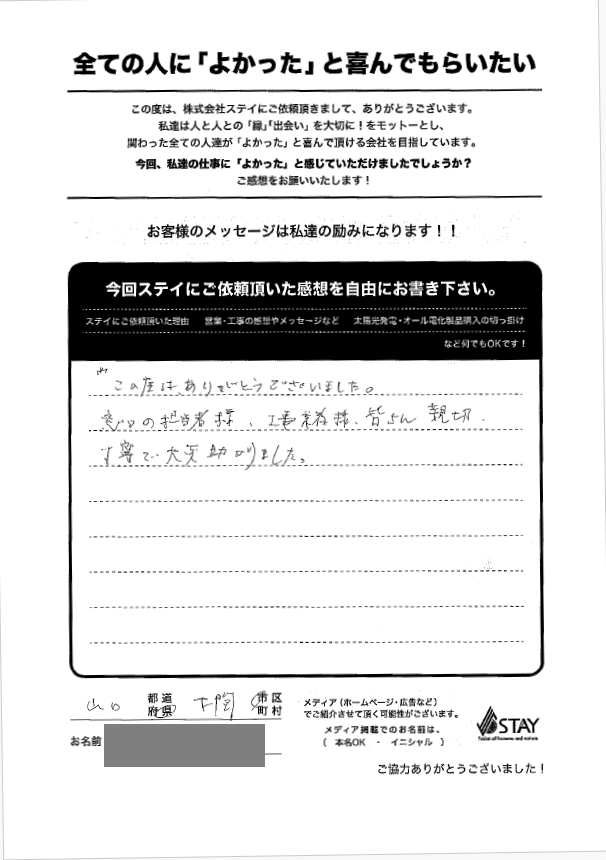 全ての人に「よかった」と喜んでもらいたい
この度は、株式会社ステイにご依頼頂きまして、ありがとうございます。
私達は人と人との「縁」「出会い」を大切に！をモットーとし、
関わった全ての人達が「よかった」と喜んで頂ける会社を目指しています。
今回、私達の仕事に「よかった」と感じていただけましたでしょうか？
ご感想をお願いいたします！
お客様のメッセージは私達の励みになります！！
今回ステイにご依頼頂いた感想を自由にお書き下さい。
ステイにご依頼頂いた理由 営業・工事の感想やメッセージなど 太陽光発電・オール電化製品購入の切っ掛け
など何でもOKです！
この度は、ありがとうございました。
窓口の担当者様、工事業者様、皆さん親切、
丁寧で大変助かりました。
山口 都道府県 下関 市区町村
お名前
メディア（ホームページ・広告など）
でご紹介させて頂く可能性がございます。
メディア掲載でのお名前は、
（ 本名OK ・ イニシャル ）
STAY
ご協力ありがとうございました！